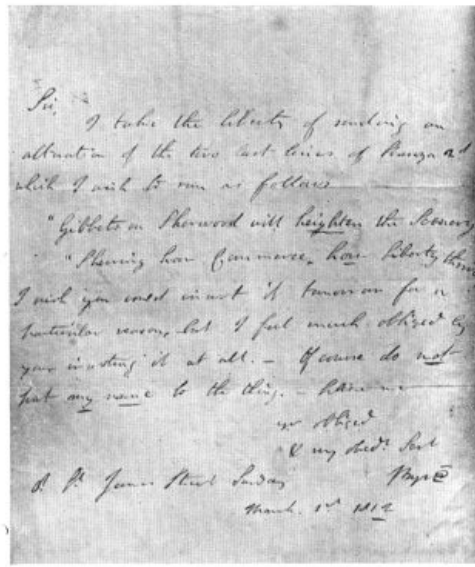 Sir,
I take the liberty of sending an
alteration of the two last lines of Stanza 2d
which I wish to run as follows
"Gibbets on Sherwood will heighten the Scenery
"Shewing how Commerce, how Liberty thrives
I wish you could insert it tomorrow for a
particular reason, but I feel much obliged by
your inserting it at all. — Of course do not
put any name to the thing. — believe me
yr obliged
& very obedt Sert
Byron
8. St. James Street Sunday
March 1st 1812